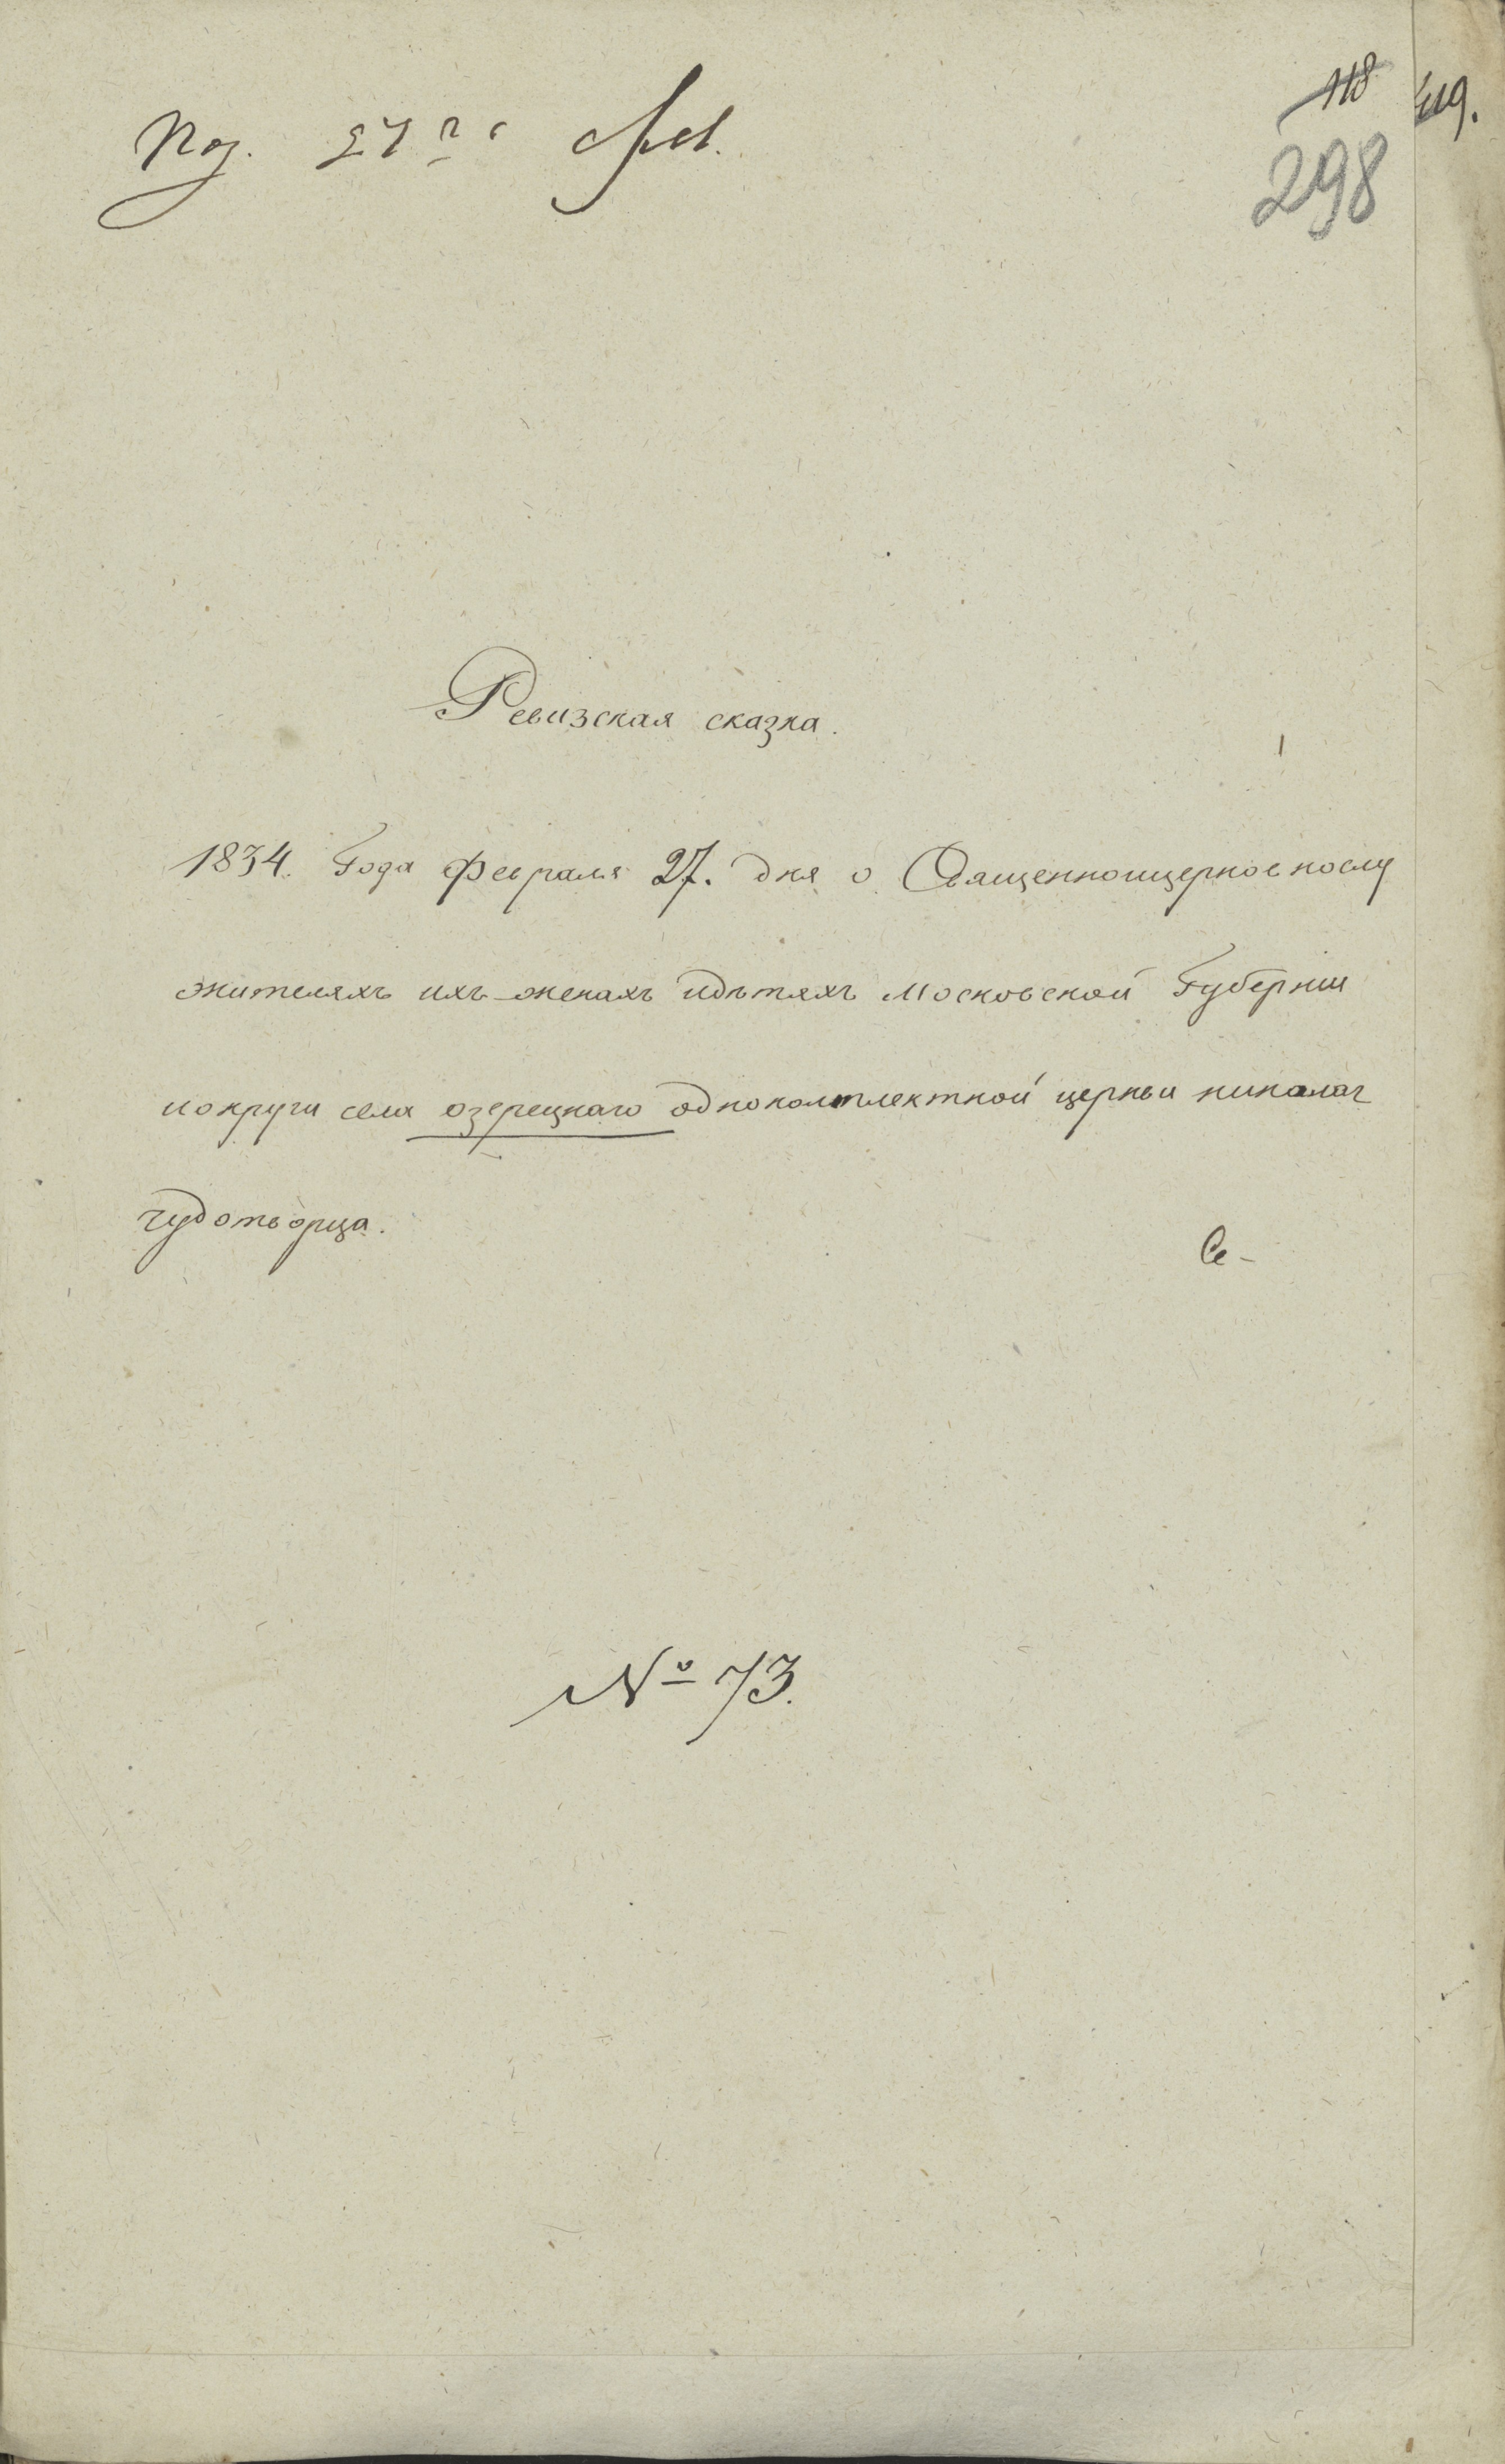 118 419.
298
Под. 27го Фев.
Ревизская сказка.
1834. Года Февраля 27. дня о Священноицерковнослу
жителяхъ ихъ женахъ идѣтяхъ Московской Губерніи
иокруги села озерецкаго однокомплектной церкви николая
чудотворца.
№ 73.